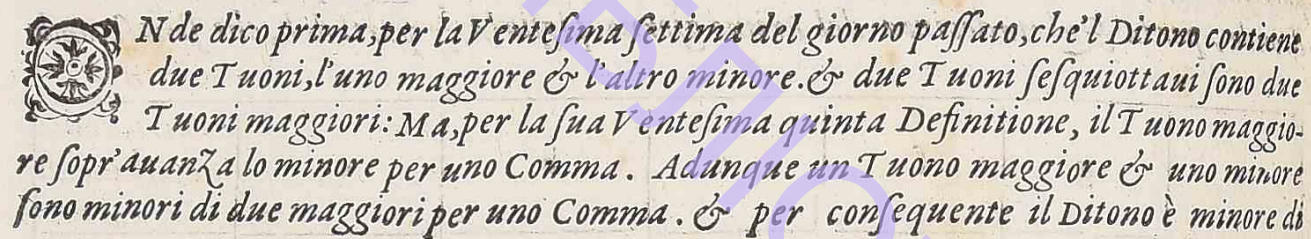 ONde dico prima, per la Ventesima settima del giorno passato, che'l Ditono contiene
due Tuoni, l'uno maggiore & l'altro minore. & due Tuoni sesquiottaui sono due
Tuoni maggiori: Ma, per la sua Ventesima quinta Definitione, il Tuono maggio-
re sopr'auanza lo minore per uno Comma. Adunque un Tuono maggiore & uno minore
sono minori di due maggiori per uno Comma. & per consequente il Ditono è minore di